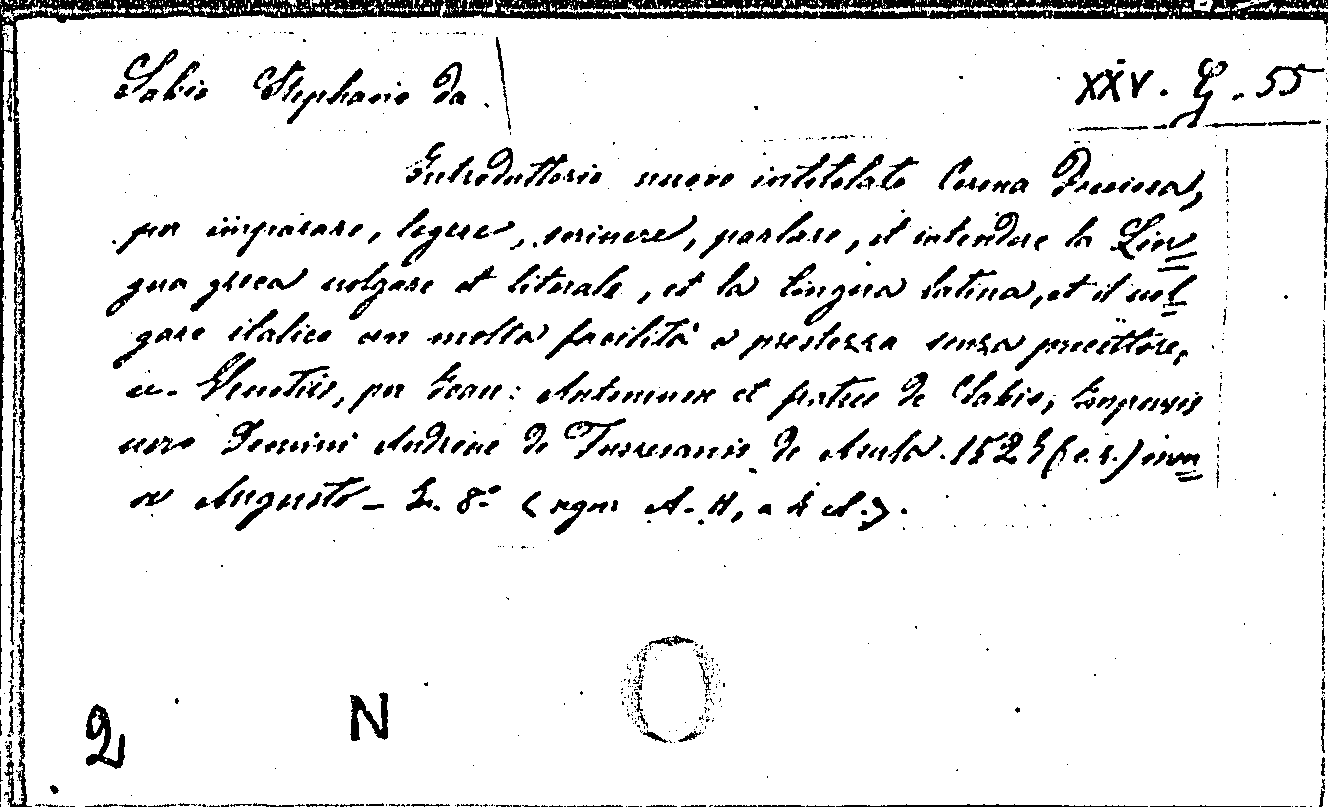 Sabio Stephano da.
XXV. G. 55
Introduttorio nuovo intitolato Corona Preciosa,
per imparare, legere, scrivere, parlare, et intendere la Lin=
gua greca volgare et literale, et la lingua latina, et il vol=
gare italico con molta facilità e prestezza senza precettore,
Venetiis, per Joan: Antonium et fratres de Sabio, Impensis
vero Domini Andreae de Turresanis de Asula. 1527 men=
se Augusto - In 8.º (sign A-H, a
2 N